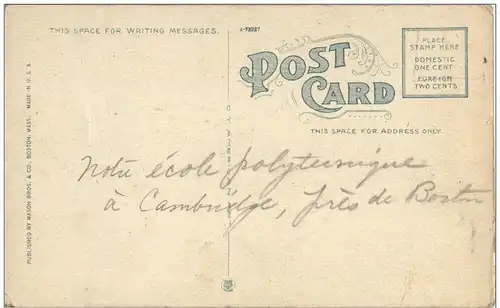 THIS SPACE FOR WRITING MESSAGES.
POST CARD
PLACE
STAMP HERE
DOMESTIC
ONE CENT
FOREIGN
TWO CENTS
THIS SPACE FOR ADDRESS ONLY.
Notre école polytechnique
à Cambridge, près de Boston
PUBLISHED BY MASON BROS. & CO., BOSTON, MASS. MADE IN U.S.A.